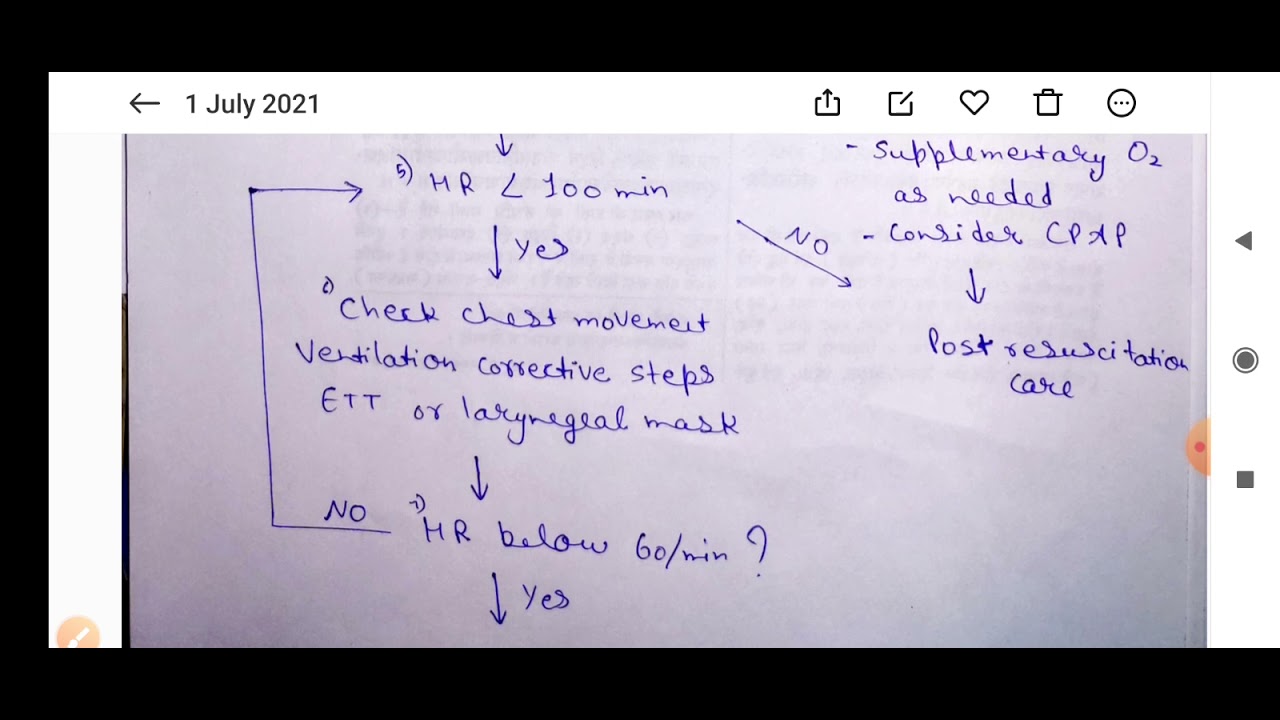 1 July 2021
- Supplementary O2
as needed
- Consider CPAP
Post resuscitation
care
5) HR < 100 min
Yes
NO
Check chest movement
Ventilation corrective steps
ETT or larynegeal mask
NO
HR below 60/min ?
Yes